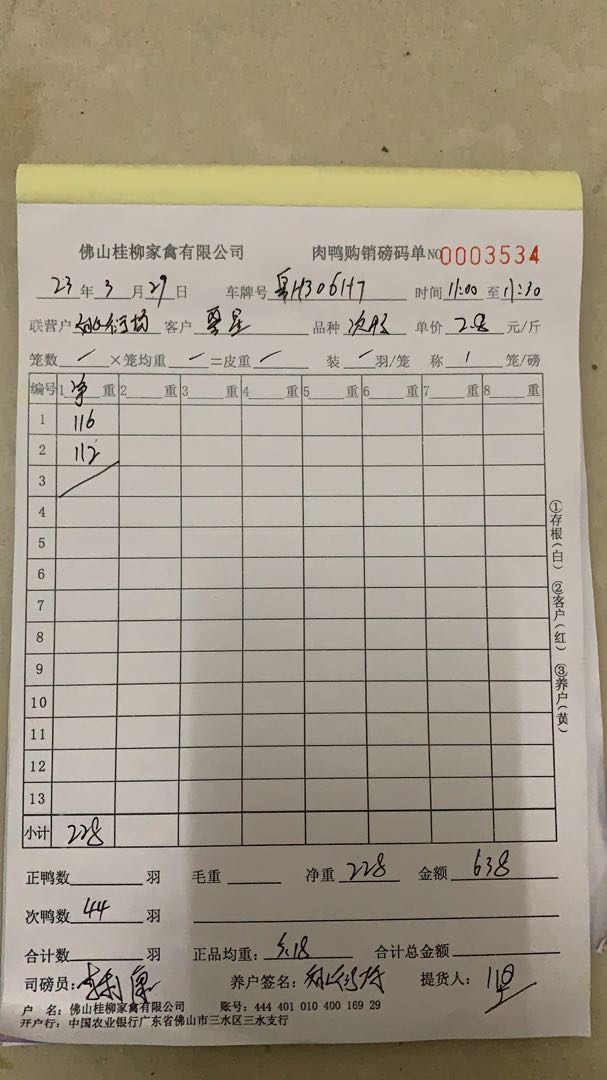 佛山桂柳家禽有限公司 肉鸭购销磅码单 NO 0003534
23 年 3 月 29 日 车牌号 粤H306H7 时间 11:00 至 11:30
联营户 客户 星 品种 次鸭 单价 2.8 元/斤
笼数 / ×笼均重 / =皮重 / 装 / 羽/笼 称 1 笼/磅
编号 1 净 重 2 重 3 重 4 重 5 重 6 重 7 重 8 重
1 116
2 112
3
4
5
6
7
8
9
10
11
12
13
小计 228
①存根(白) ②客户(红) ③养户(黄)
正鸭数 羽 毛重 净重 228 金额 638
次鸭数 44 羽
合计数 羽 正品均重: 5.18 合计总金额
司磅员: 养户签名: 提货人:
户 名: 佛山桂柳家禽有限公司 账号: 444 401 010 400 169 29
开户行: 中国农业银行广东省佛山市三水区三水支行